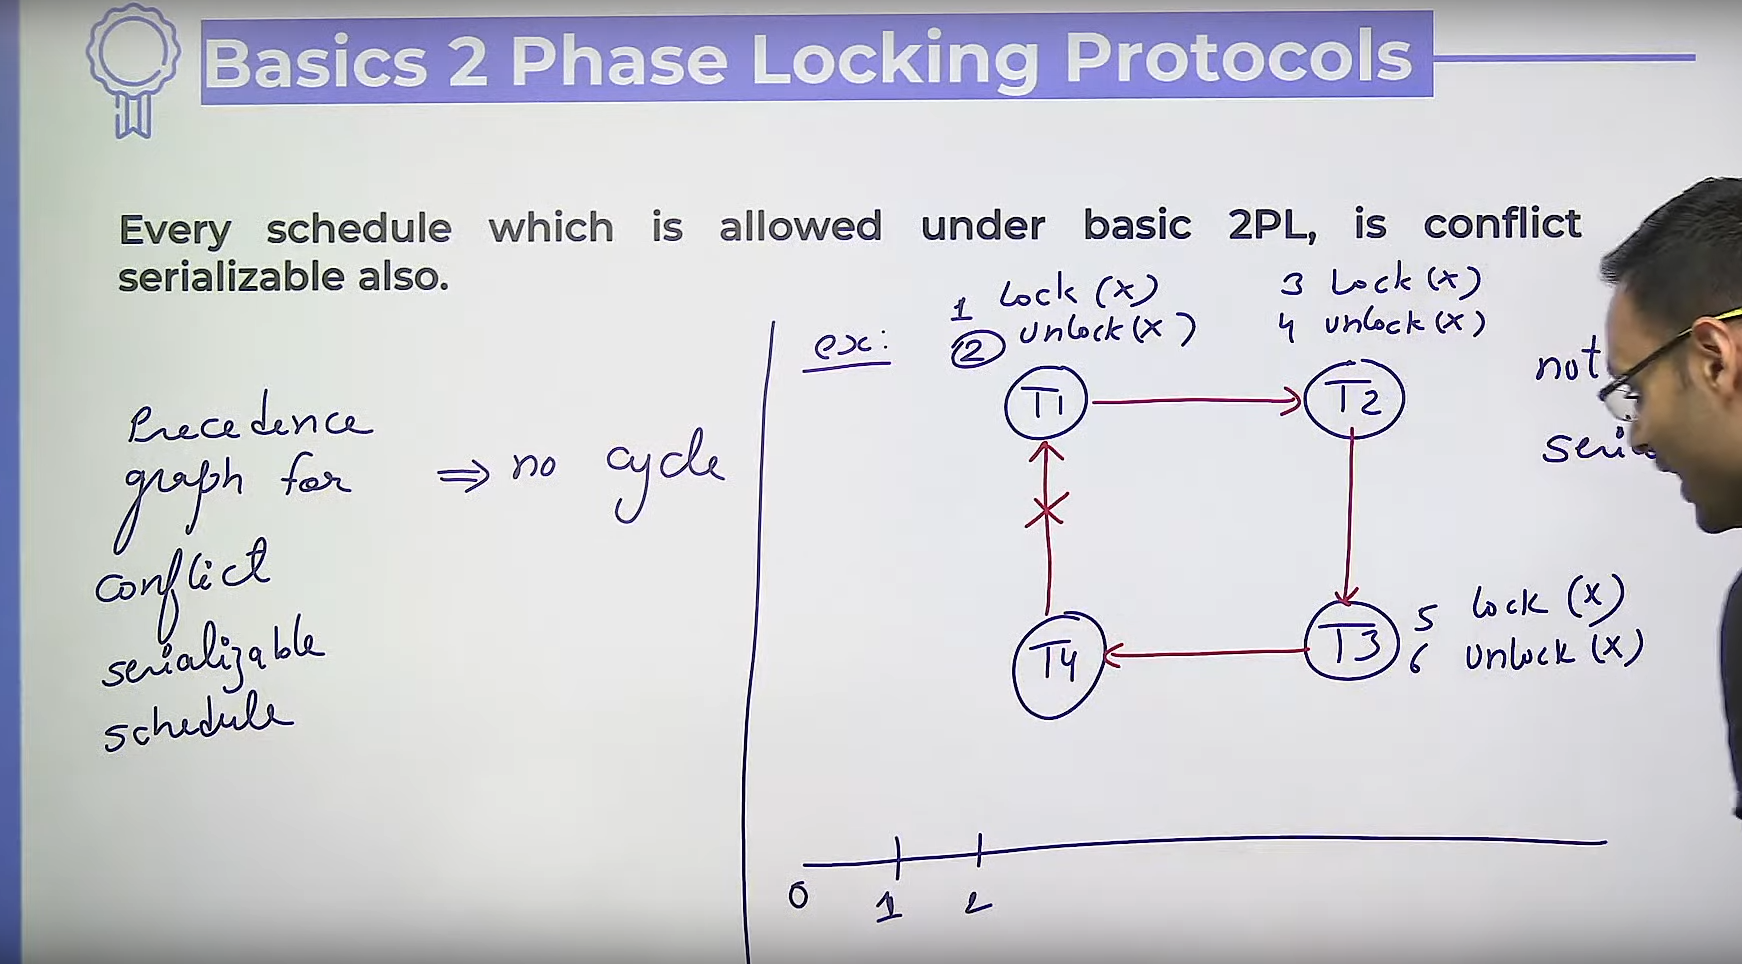 Basics 2 Phase Locking Protocols
Every schedule which is allowed under basic 2PL, is conflict
serializable also.
Precedence
graph for
conflict
serializable
schedule
⇒ no cycle
ex:
1 Lock (x)
2 Unlock (x)
3 Lock (x)
4 Unlock (x)
T1
T2
not
T4
T3
5 lock (x)
6 Unlock (x)
0
1
2